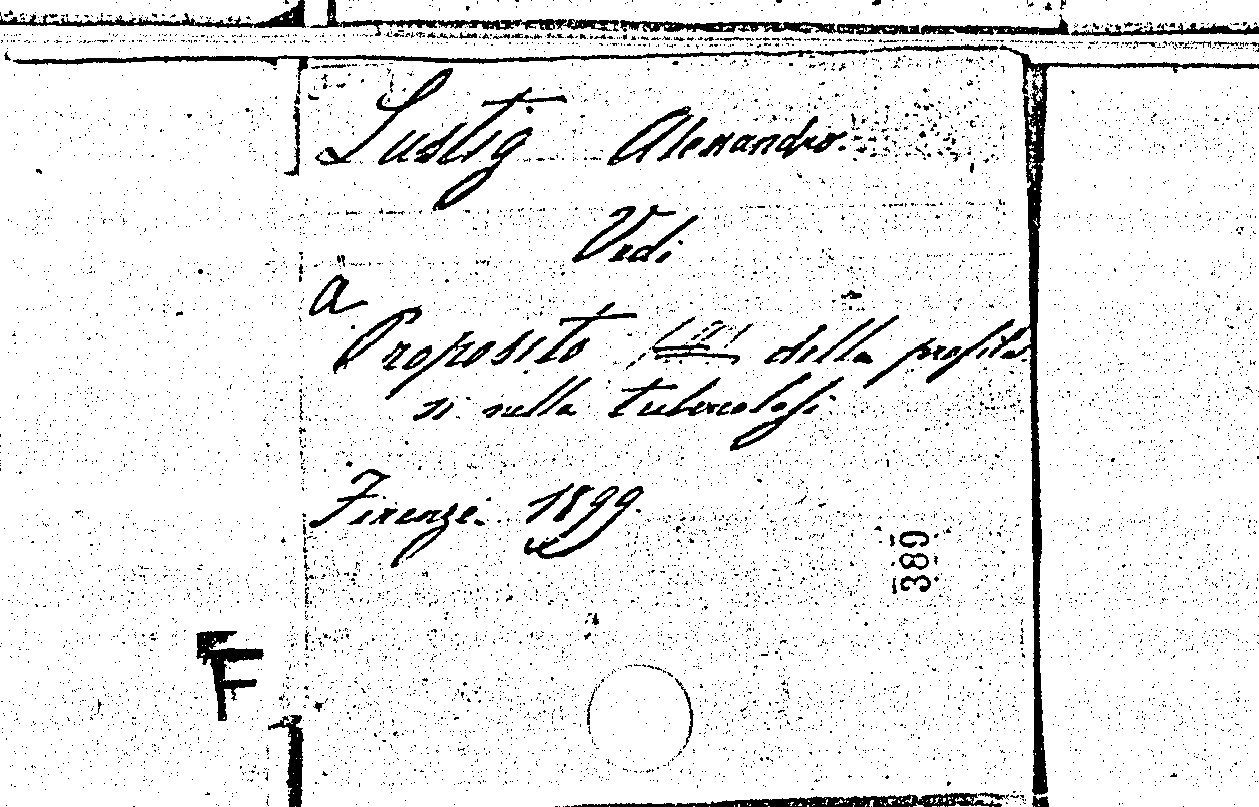 Lustig Alessandro.
Vedi
A
Proposito della profilas
si nella tubercolosi
Firenze. 1899.
389
F